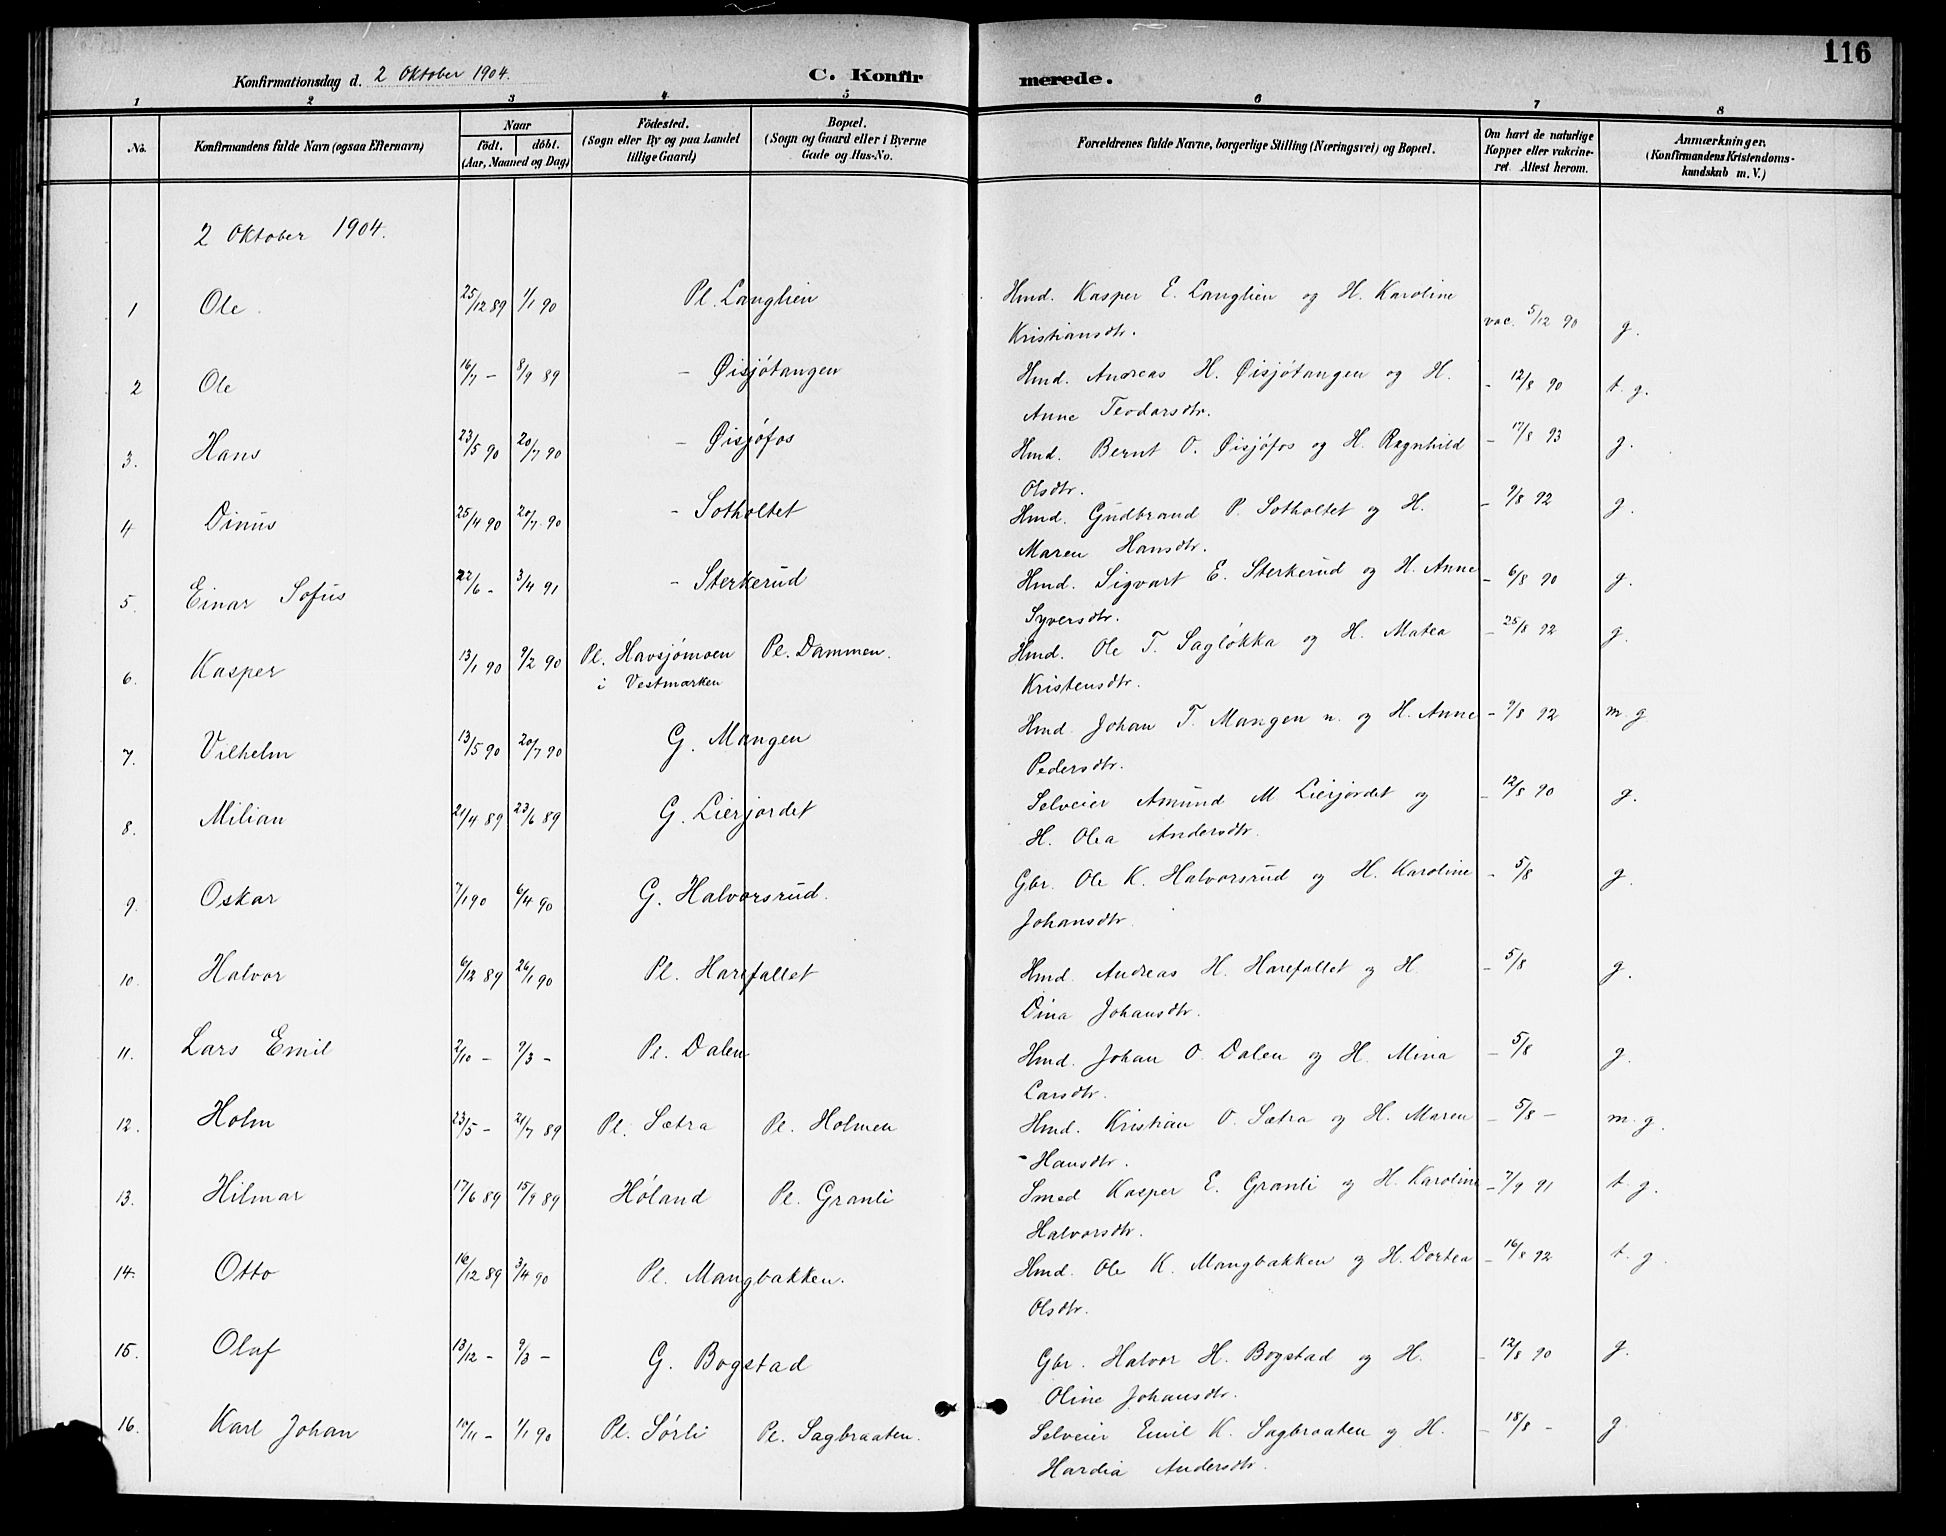 116
Konfirmationsdag d. 2 Oktober 1904.
C. Konfirmerede.
1 2 3 4 5 6 7 8
No.
Konfirmandens fulde Navn (ogsaa Efternavn)
Naar
födt. döbt.
(Aar, Maaned og Dag)
Födested.
(Sogn eller By og paa Landet
tillige Gaard)
Bopæl.
(Sogn og Gaard eller i Byerne
Gade og Hus-No.
Forældrenes fulde Navne, borgerlige Stilling (Næringsvei) og Bopæl.
Om havt de naturlige
Kopper eller vakcine-
ret Attest herom.
Anmærkninger.
(Konfirmandens Kristendoms-
kundskab m. V.)
2 Oktober 1904.
1 Ole. 25/12 89 1/1 90 Pl. Langlien Hmd. Kasper E. Langlien og H. Karoline
Kristiansdtr. vac. 5/12 90 g.
2 Ole 16/7 - 8/9 89 - Øisjötangen Hmd. Andreas H. Øisjötangen og H.
Anne Teodorsdtr. - 12/8 90 t. g.
3. Hans 23/5 90 20/7 90 - Øisjöfos Hmd. Bernt O. Øisjöfos og H. Ragnhild
Olsdtr. - 17/8 93 g.
4 Dinus 25/4 90 20/7 90 - Sotholtet Hmd. Gudbrand P. Sotholtet og H.
Maren Hansdtr. - 9/8 92 g.
5. Einar Sofus 22/6 - 3/4 91 - Sterkerud Hmd. Sigvart E. Sterkerud og H. Anne
Syversdtr. - 6/8 90 g.
6. Kasper 13/1 90 9/2 90 Pl. Havsjömoen Pl. Dammen. Hmd. Ole T. Sagløkka og H. Matea - 25/8 92 g.
i Vestmarken Kristensdtr.
7. Vilhelm 13/5 90 20/7 90 G. Mangen Hmd. Johan T. Mangen n. og H. Anne
Pedersdtr. - 9/8 92 m. g
8. Milian 21/4 89 23/6 89 G. Lierjordet Selveier Amund M Lierjordet og
H. Olea Andersdtr. - 12/8 90 g.
9. Oskar 7/1 90 6/4 90 G. Halvorsrud. Gbr. Ole K. Halvorsrud og H. Karoline
Johansdtr. - 5/8 g.
10. Halvor 6/12 89 26/1 90 Pl. Harefallet Hmd. Andreas H. Harefallet og H
Dina Johansdtr. - 5/8 g.
11. Lars Emil 2/10 - 9/3 - Pl. Dalen Hmd. Johan O. Dalen og H. Mina
Larsdtr. - 5/8 g.
12. Holm 23/5 - 21/7 89 Pl. Sætra Pl. Holmen Hmd. Kristian O. Sætra og H. Maren
Hansdtr. - 5/8 - m. g.
13. Hilmar 17/6 89 15/9 89 Höland Pl. Granli Smed Kasper E. Granli og H. Karoline
Halvorsdtr. - 7/9 91 t. g.
14. Otto 16/12 89 3/4 90 Pl. Mangbakken. Hmd. Ole K. Mangbakken og H. Dortea
Olsdtr. - 16/8 92 t. g.
15. Olaf 13/12 - 9/3 - G. Bogstad Gbr. Halvor H. Bogstad og H.
Oline Johansdtr. - 12/8 90 g.
16. Karl Johan 10/11 - 1/1 90 Pl. Sörli Pl. Sagbraaten. Selveier Emil K. Sagbraaten og H.
Hardia Andersdtr. - 18/8 - g.